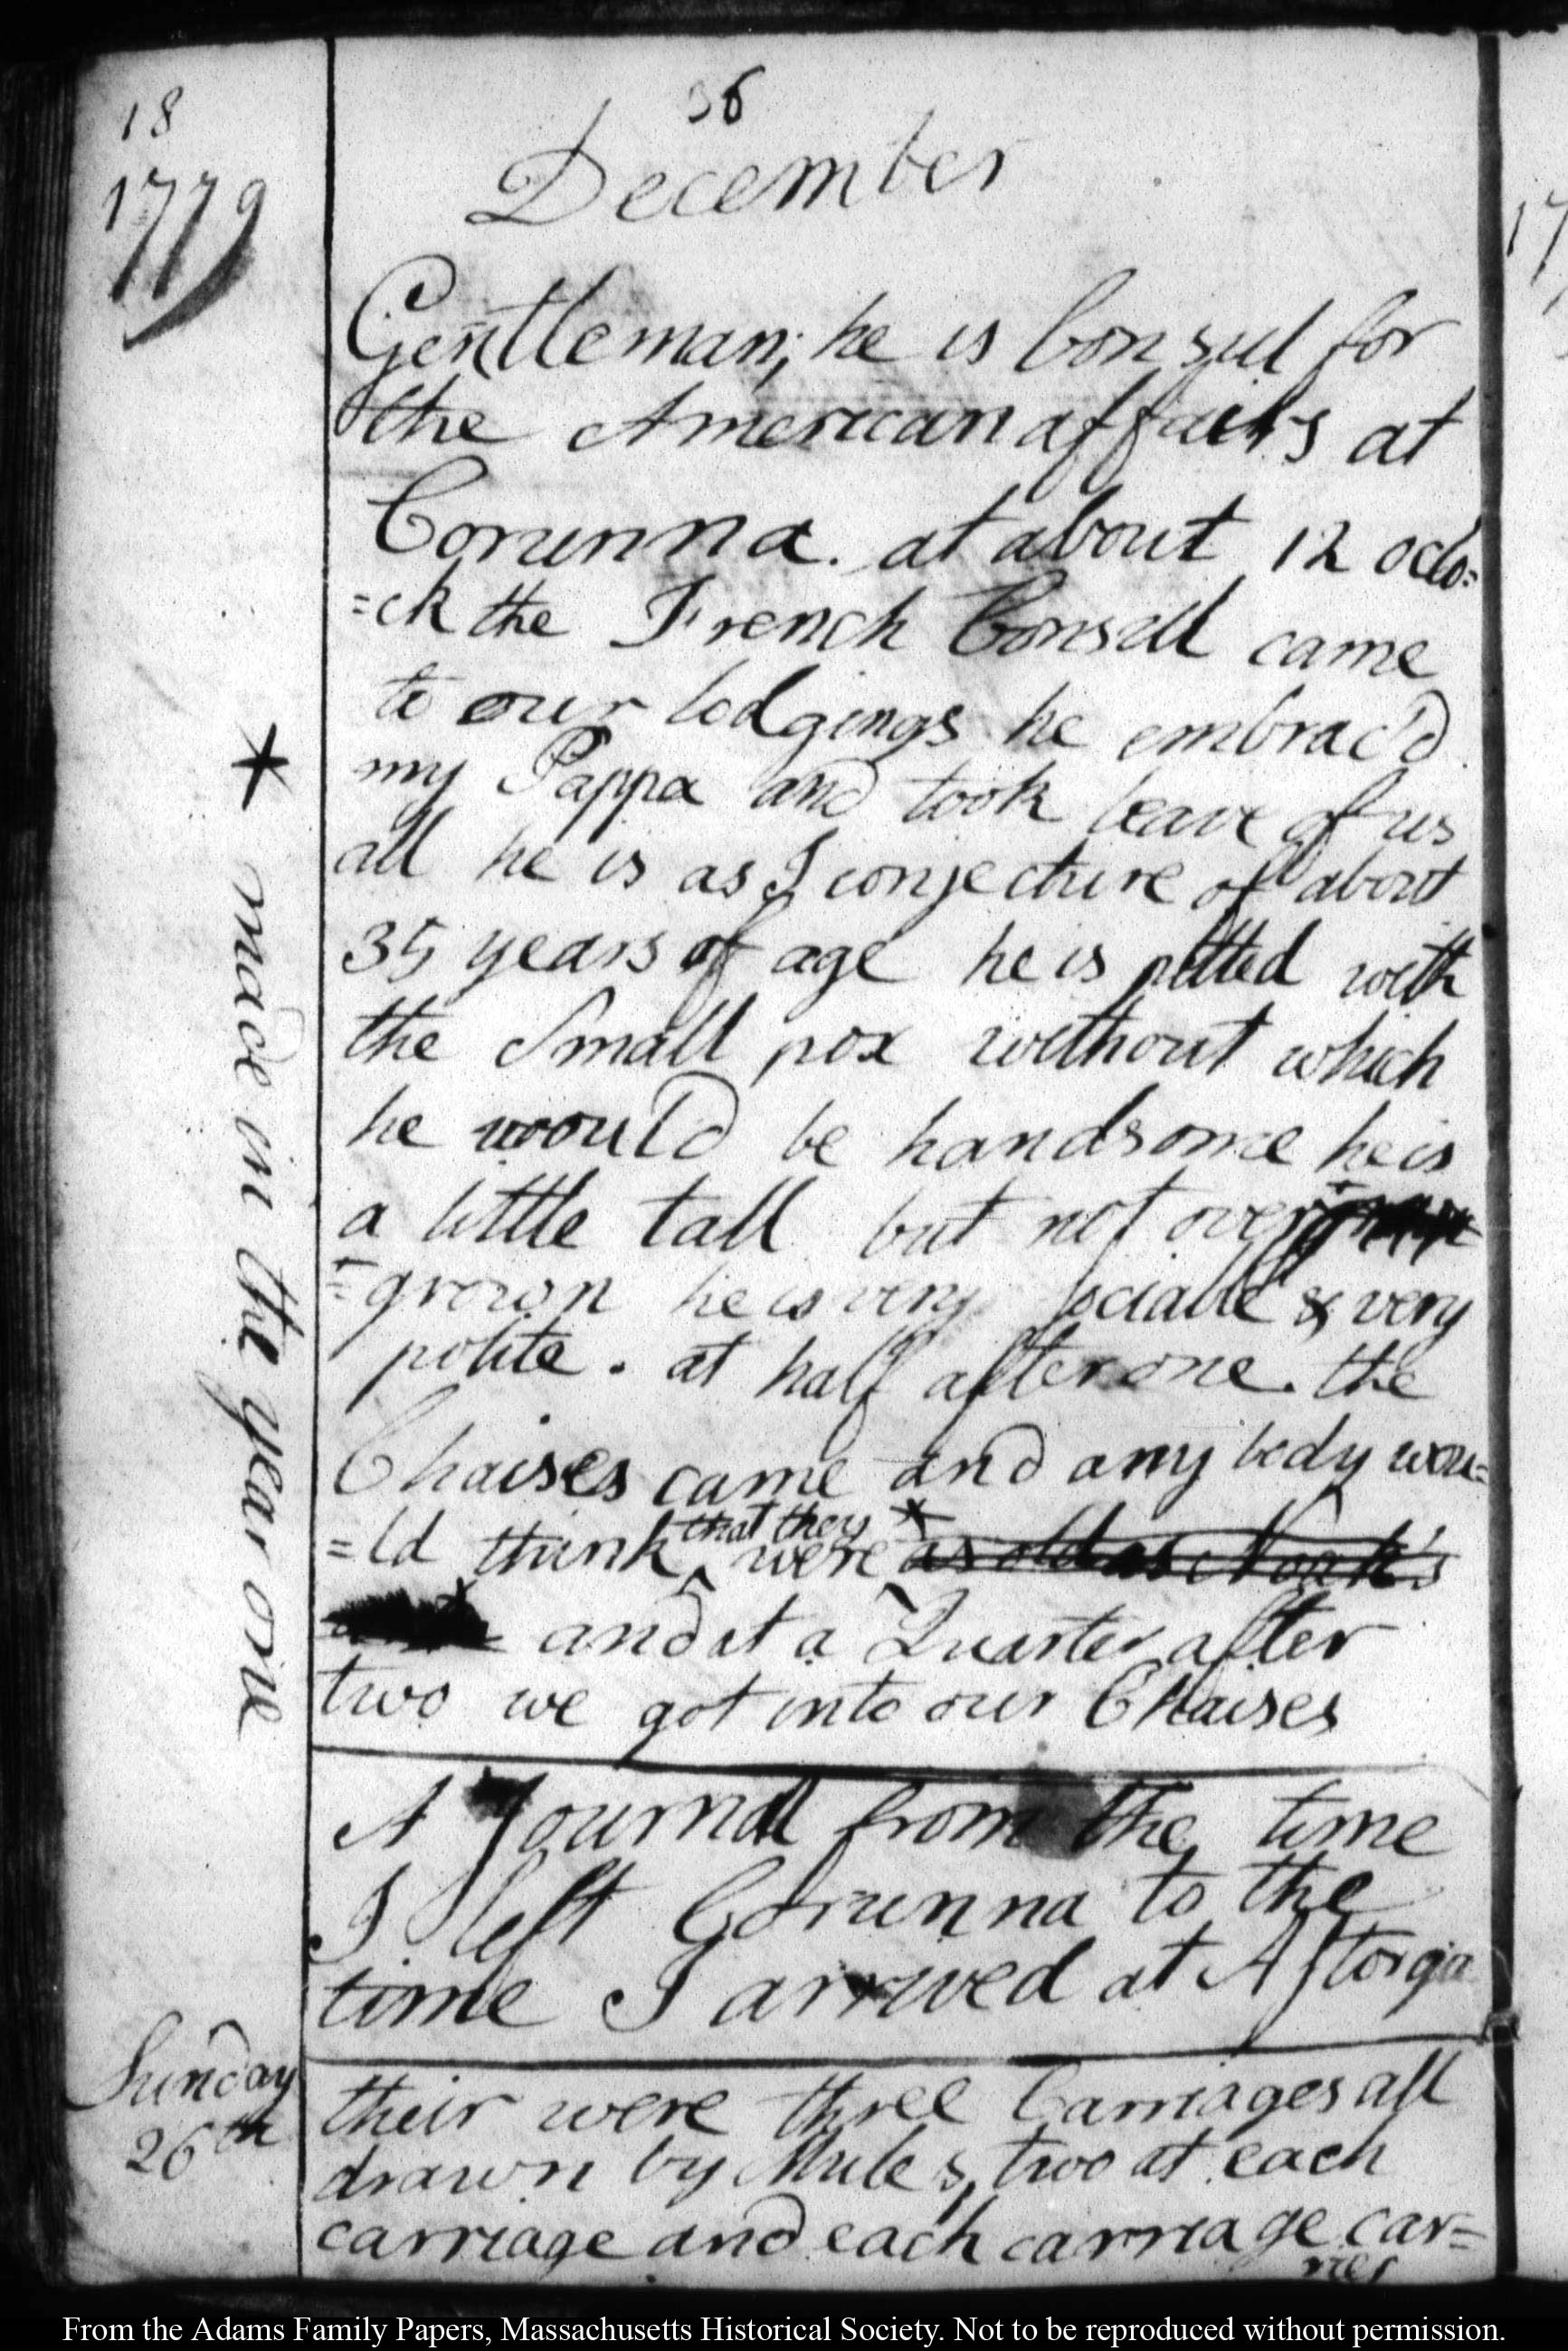 18
36
1779
December
Gentleman; he is Consul for
the American affairs at
Corunna. at about 12 oclo=
=ck the French Consull came
to our lodgings he embrac'd
my Pappa and took leave of us
all he is as I conjecture of about
35 years of age he is pitted with
the Small pox without which
he would be handsome he is
a little tall but not over
=grown he is very sociable & very
polite. at half after one. the
Chaises came and any body wou=
=ld think that they were * as old as Noah's
and at a Quarter after
two we got into our Chaises
* made in the year one
A Journal from the time
I left Corunna to the
time I arrived at Astorga
Sunday
26th
their were three Carriages all
drawn by Mules, two at each
carriage and each carriage car=
ries
From the Adams Family Papers, Massachusetts Historical Society. Not to be reproduced without permission.